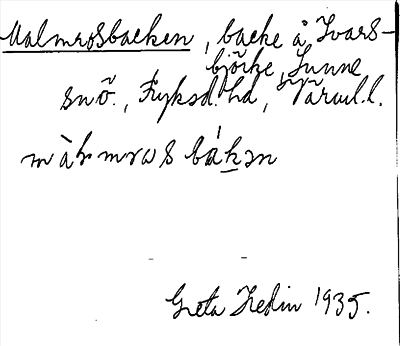 Malmrosbacken, backe å Ivars-
björke, Sunne
snö., Fryksd. hd, Värml. l.
màlmrωs bákən
Greta Hedin 1935.